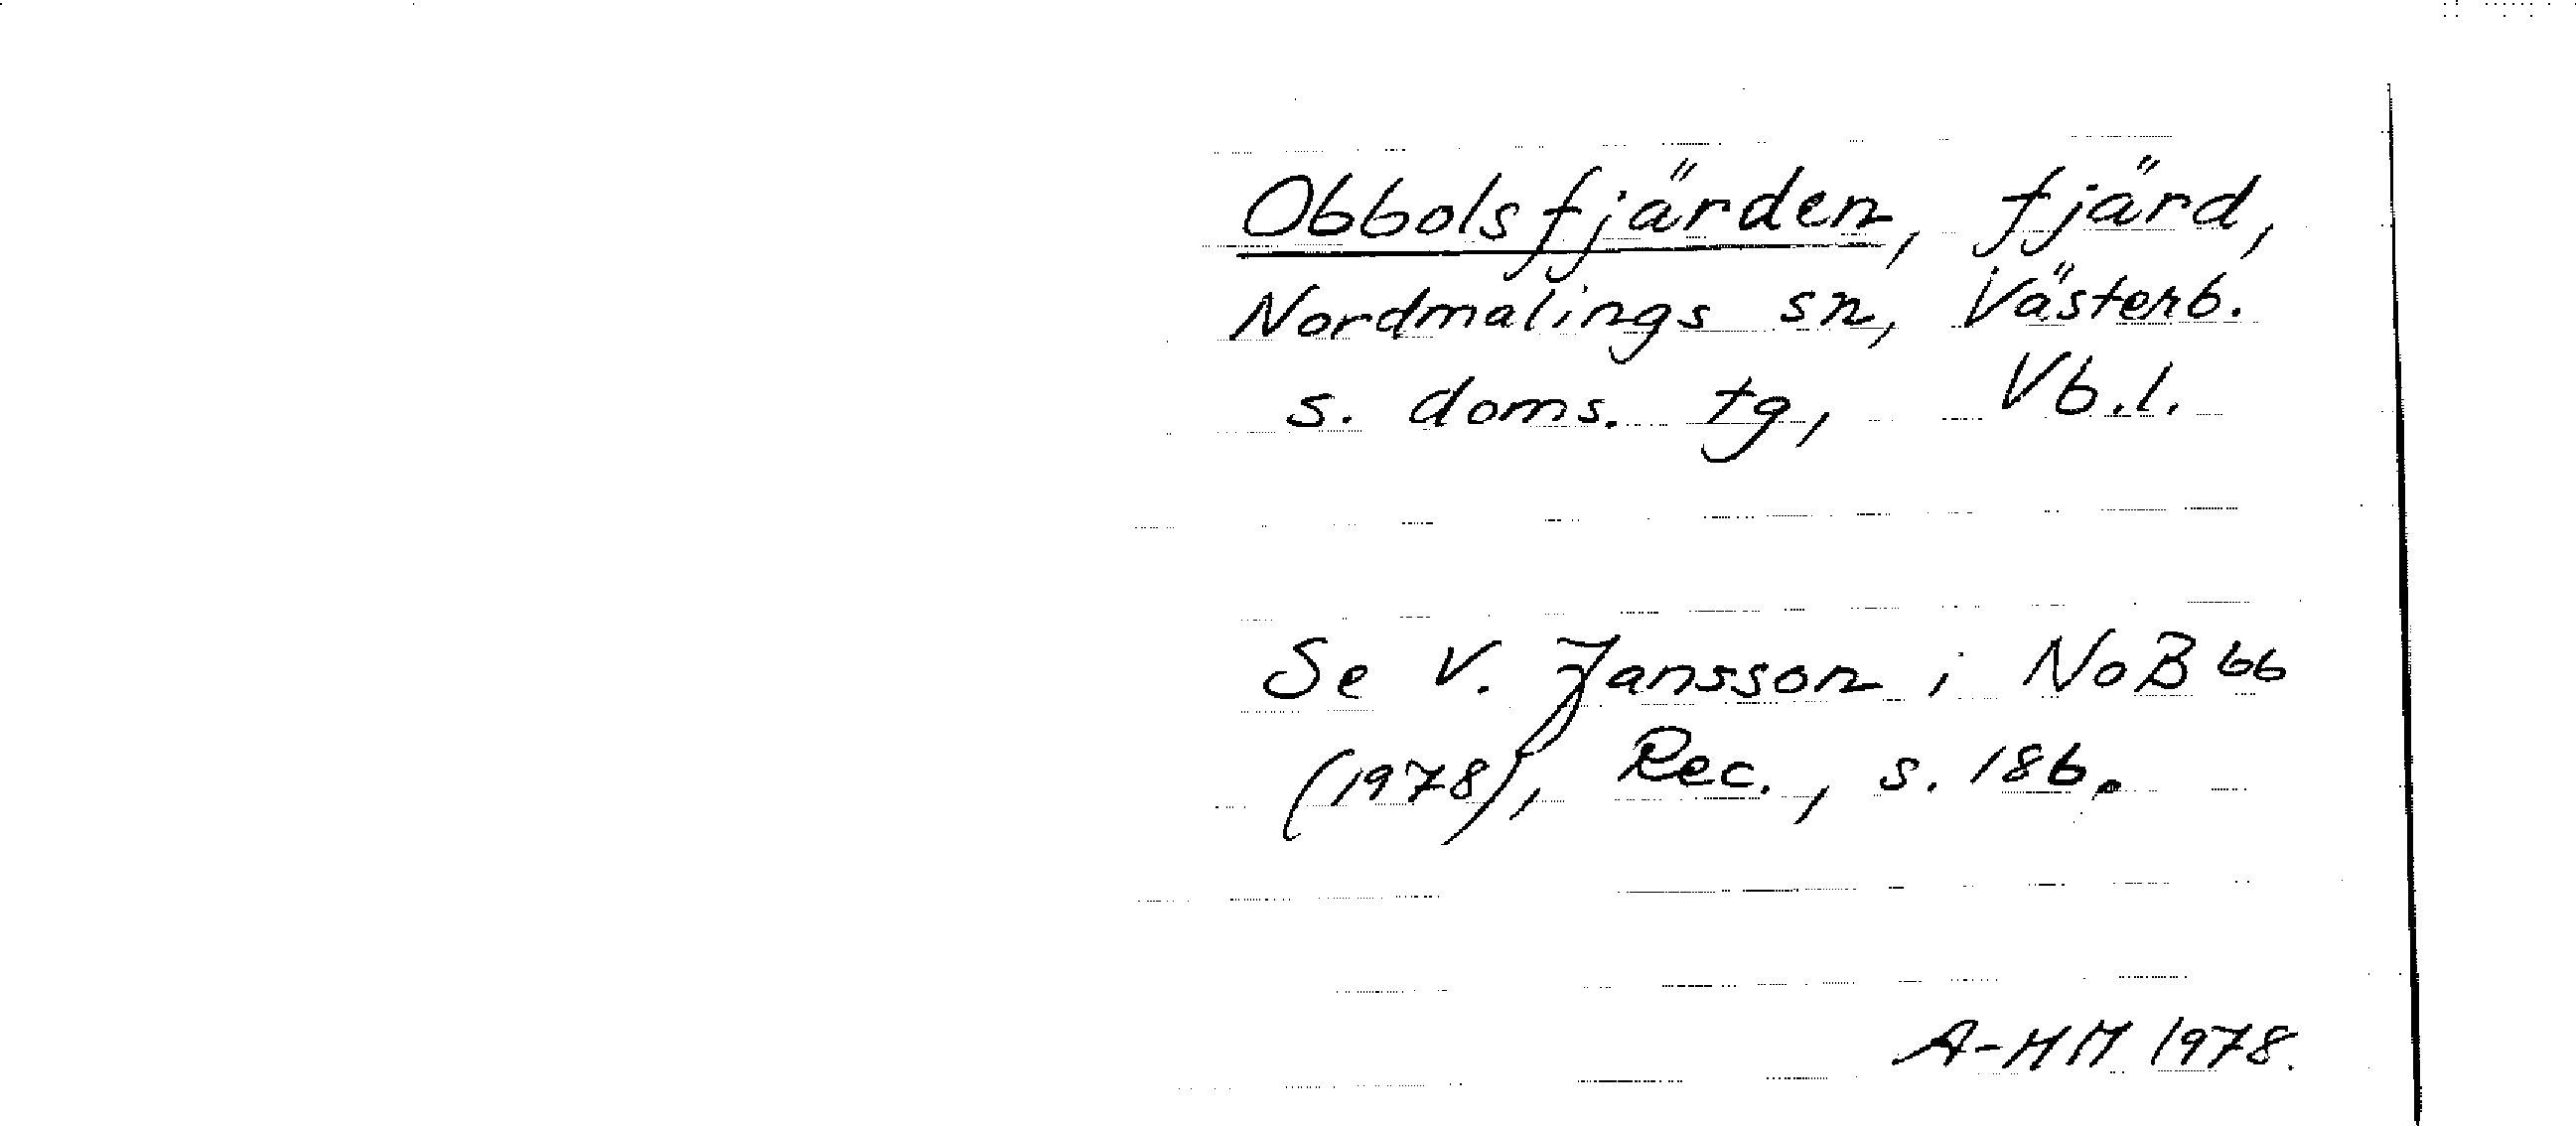 Obbolsfjärden, fjärd,
Nordmalings sn, Västerb.
s. doms. tg, Vb.l.
Se V. Jansson i NoB 66
(1978), Rec., s. 186.
A-HM 1978.